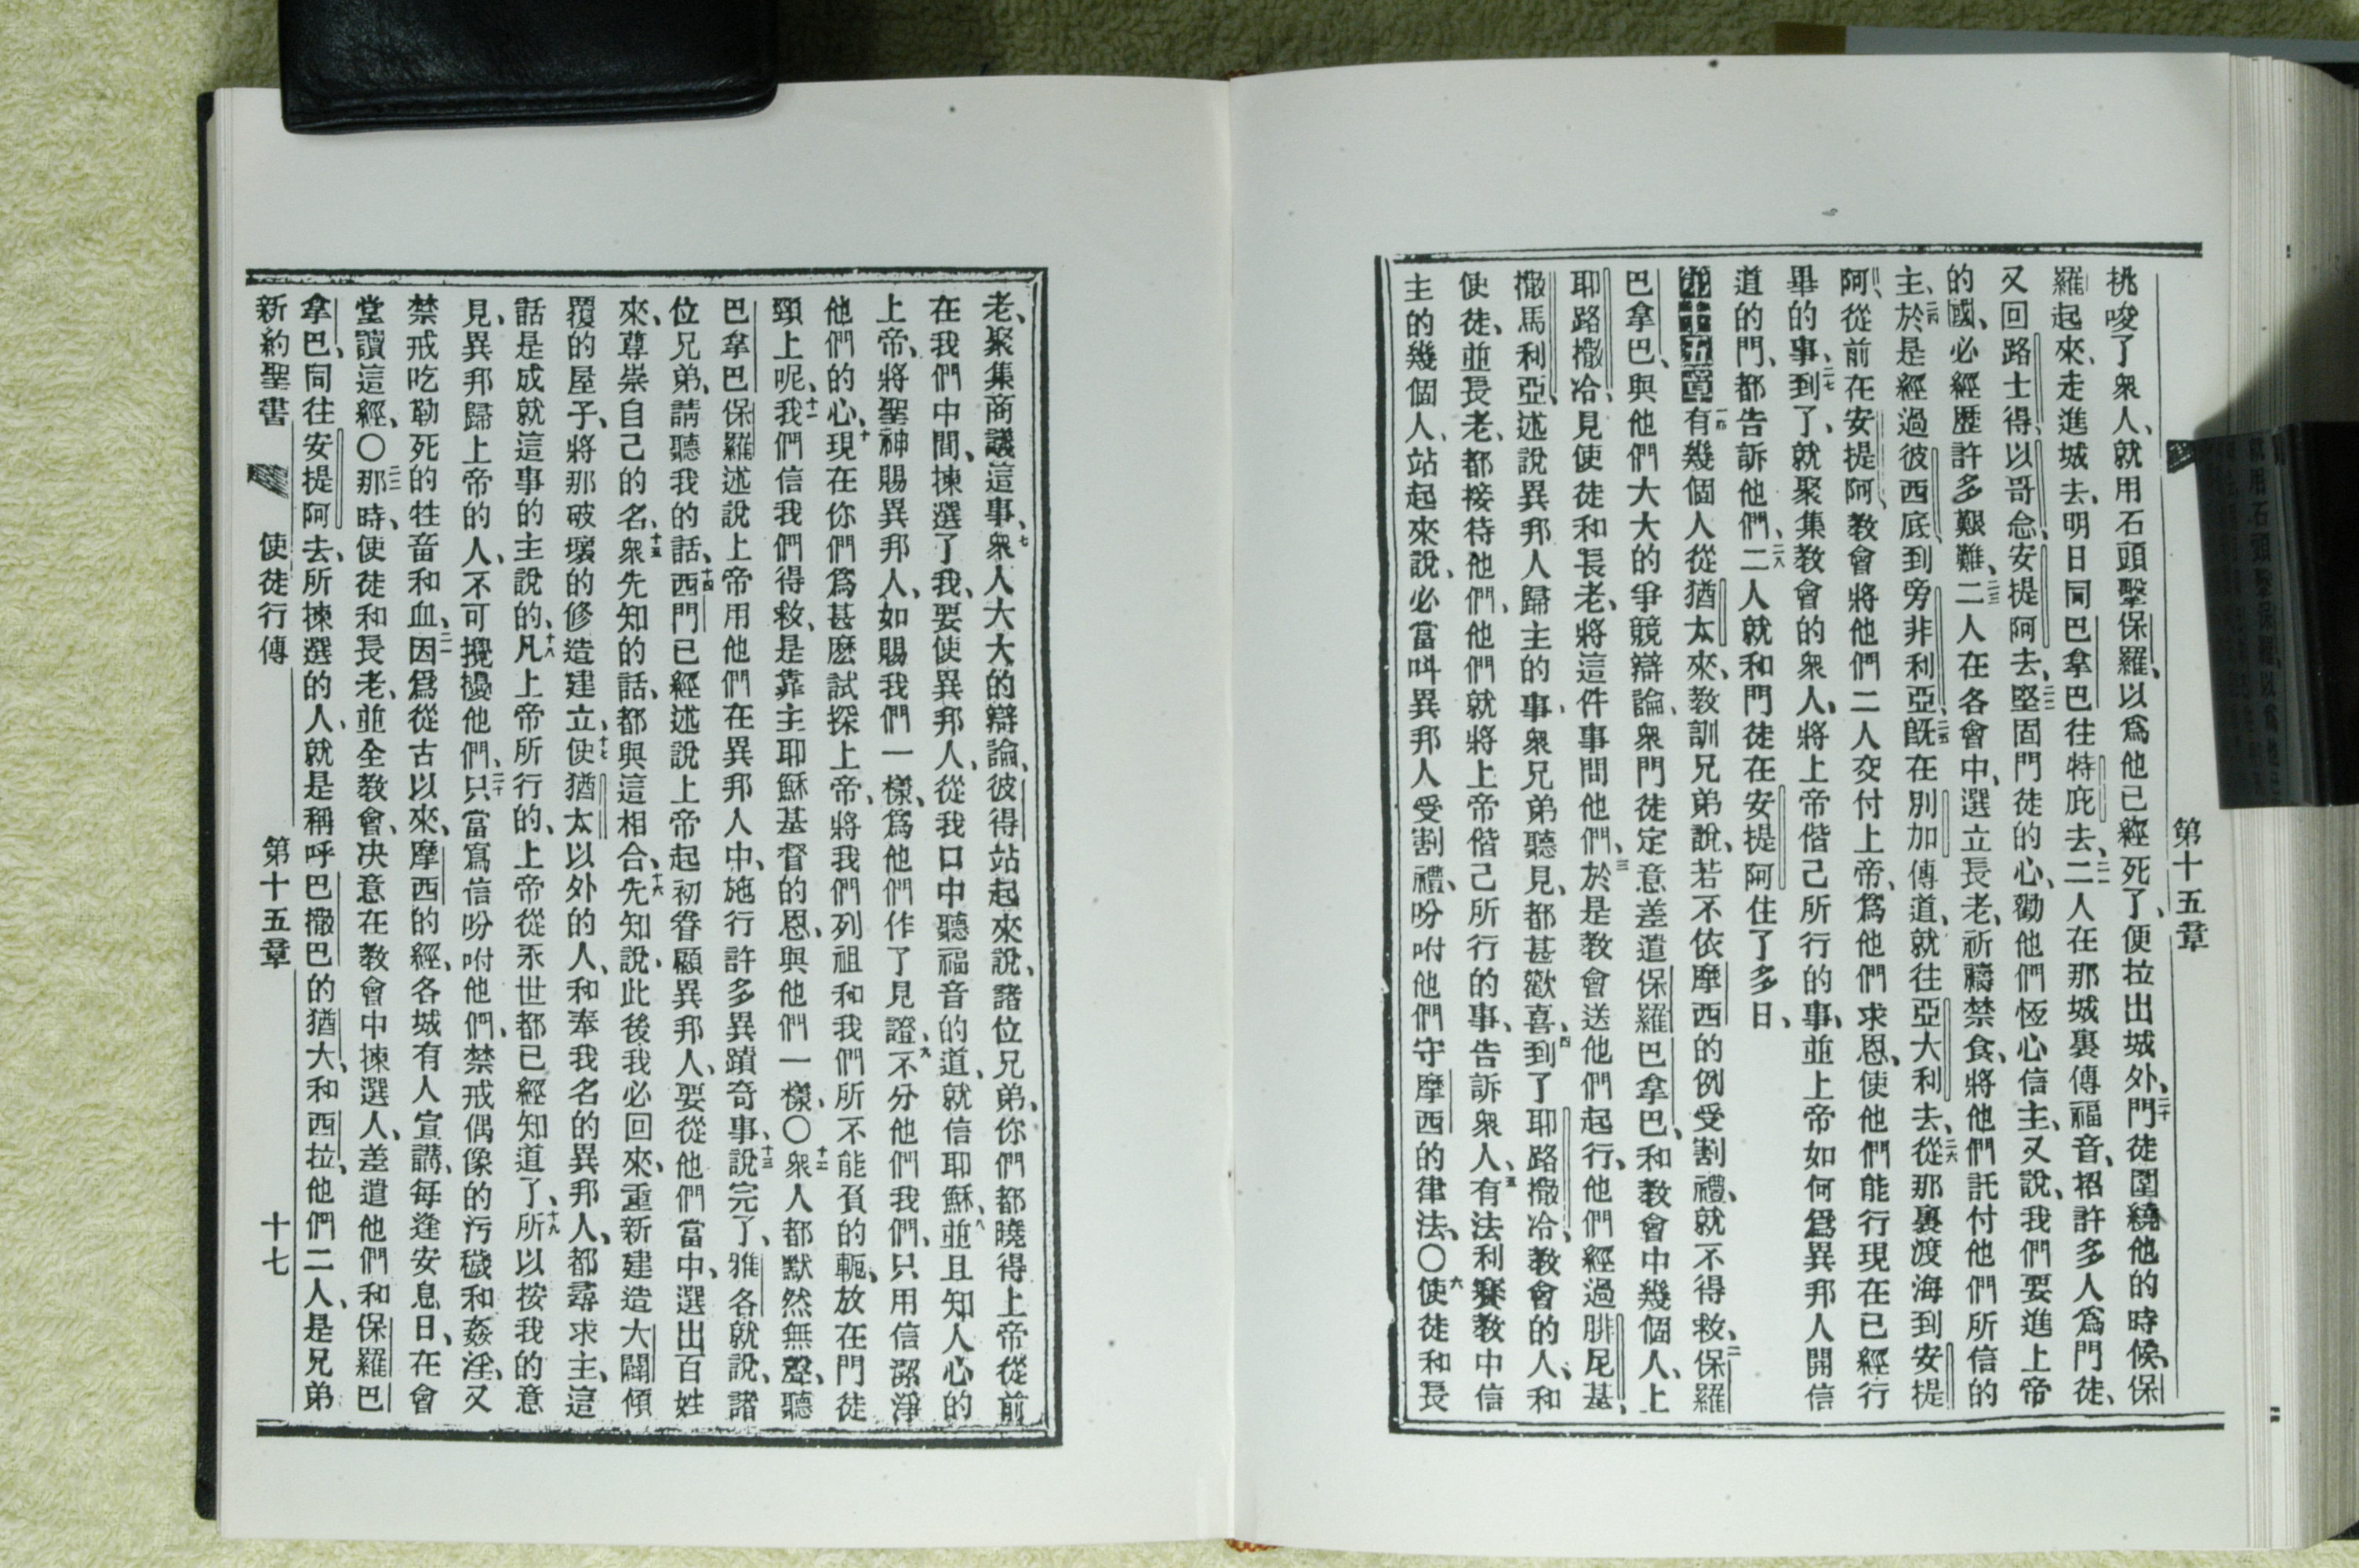 第十五章
挑唆了衆人、就用石頭擊保羅、以爲他已經死了、便拉出城外、二十門徒圍繞他的時候、保
羅起來、走進城去、明日同巴拿巴往特庇去、二一二人在那城裏傳福音、招許多人爲門徒、
又回路士得、以哥念、安提阿去、二二堅固門徒的心、勸他們恆心信主、又說、我們要進上帝
的國、必經歷許多艱難、二三二人在各會中、選立長老、祈禱禁食、將他們託付他們所信的
主、二四於是經過彼西底、到旁非利亞、二五旣在別加傳道、就往亞大利去、二六從那裏渡海到安提
阿、從前在安提阿、教會將他們二人交付上帝、爲他們求恩、使他們能行現在已經行
畢的事、二七到了、就聚集教會的衆人、將上帝偕己所行的事、並上帝如何爲異邦人開信
道的門、都告訴他們、二八二人就和門徒在安提阿住了多日、
第十五章 一有幾個人從猶太來、教訓兄弟說、若不依摩西的例受割禮、就不得救、二保羅
巴拿巴、與他們大大的爭競辯論、衆門徒定意差遣保羅巴拿巴、和教會中幾個人、上
耶路撒冷、見使徒和長老、將這件事問他們、三於是教會送他們起行、他們經過腓尼基、
撒馬利亞、述說異邦人歸主的事、衆兄弟聽見、都甚歡喜、四到了耶路撒冷、教會的人、和
使徒、並長老、都接待他們、他們就將上帝偕己所行的事、告訴衆人、五有法利賽教中信
主的幾個人、站起來說、必當叫異邦人受割禮、吩咐他們守摩西的律法、○六使徒和長
老、聚集商議這事、七衆人大大的辯論、彼得站起來說、諸位兄弟、你們都曉得上帝從前
在我們中間、揀選了我、要使異邦人、從我口中聽福音的道、就信耶穌、八並且知人心的
上帝、將聖神賜異邦人、如賜我們一樣、爲他們作了見證、九不分他們我們、只用信潔淨
他們的心、十現在你們爲甚麽試探上帝、將我們列祖和我們所不能負的軛、放在門徒
頸上呢、十一我們信我們得救、是靠主耶穌基督的恩、與他們一樣、○十二衆人都默然無聲、聽
巴拿巴保羅述說上帝用他們在異邦人中、施行許多異蹟奇事、十三說完了、雅各就說、諸
位兄弟、請聽我的話、十四西門已經述說上帝起初眷顧異邦人、要從他們當中、選出百姓
來、尊崇自己的名、十五衆先知的話、都與這相合、十六先知說、此後我必回來、重新建造大闢傾
覆的屋子、將那破壞的修造建立、十七使猶太以外的人、和奉我名的異邦人、都尋求主、這
話是成就這事的主說的、十八凡上帝所行的、上帝從永世都已經知道了、十九所以按我的意
見、異邦歸上帝的人、不可攪擾他們、二十只當寫信吩咐他們、禁戒偶像的污穢和姦淫、又
禁戒吃勒死的牲畜和血、二一因爲從古以來、摩西的經、各城有人宣講、每逢安息日、在會
堂讀這經、○二二那時、使徒和長老、並全教會、决意在教會中揀選人、差遣他們和保羅巴
拿巴、同往安提阿去、所揀選的人、就是稱呼巴撒巴的猶大、和西拉、他們二人、是兄弟
新約聖書 使徒行傳 第十五章 十七